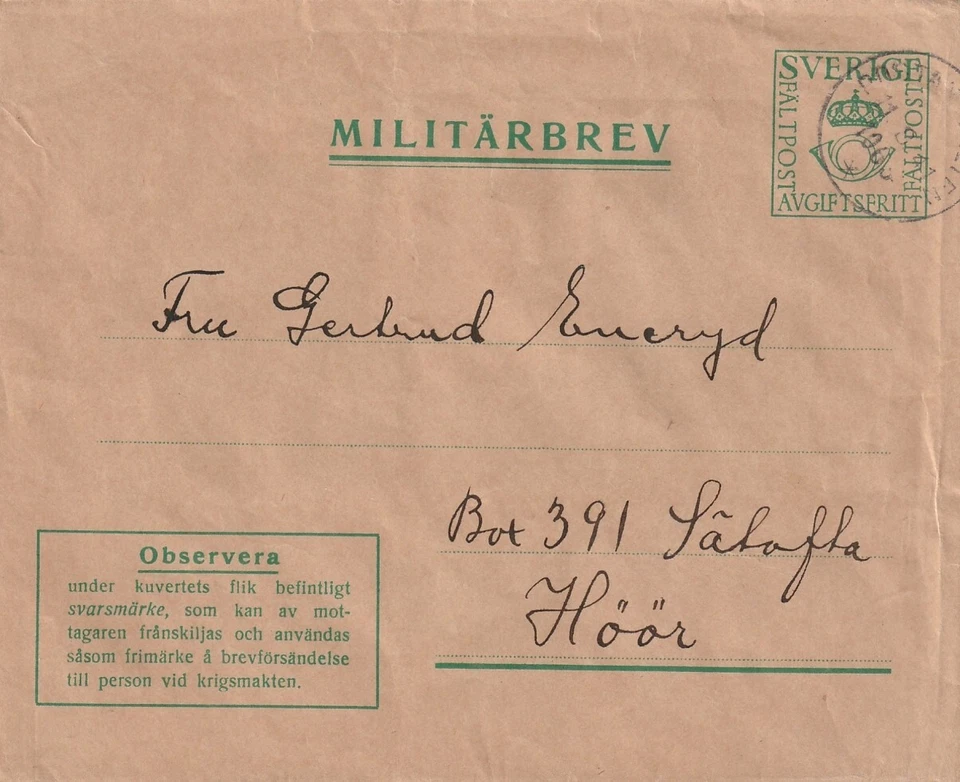 SVERIGE
FÄLTPOST
FÄLTPOST
AVGIFTSFRITT
MILITÄRBREV
Fru Gertrud Eneryd
Box 391 Sätofta
Höör
Observera
under kuvertets flik befintligt
svarsmärke, som kan av mot-
tagaren frånskiljas och användas
såsom frimärke å brevförsändelse
till person vid krigsmakten.